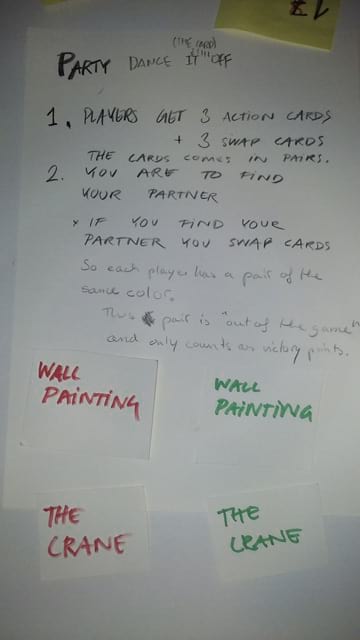 (THE CARD)
PARTY DANCE IT OFF
1. PLAYERS GET 3 ACTION CARDS
+ 3 SWAP CARDS
THE CARDS COMES IN PAIRS.
2. YOU ARE TO FIND
YOUR PARTNER
* IF YOU FIND YOUR
PARTNER YOU SWAP CARDS
So each player has a pair of the
same color.
This pair is "out of the game"
and only counts as victory points.
WALL
PAINTING
WALL
PAINTING
THE
CRANE
THE
CRANE